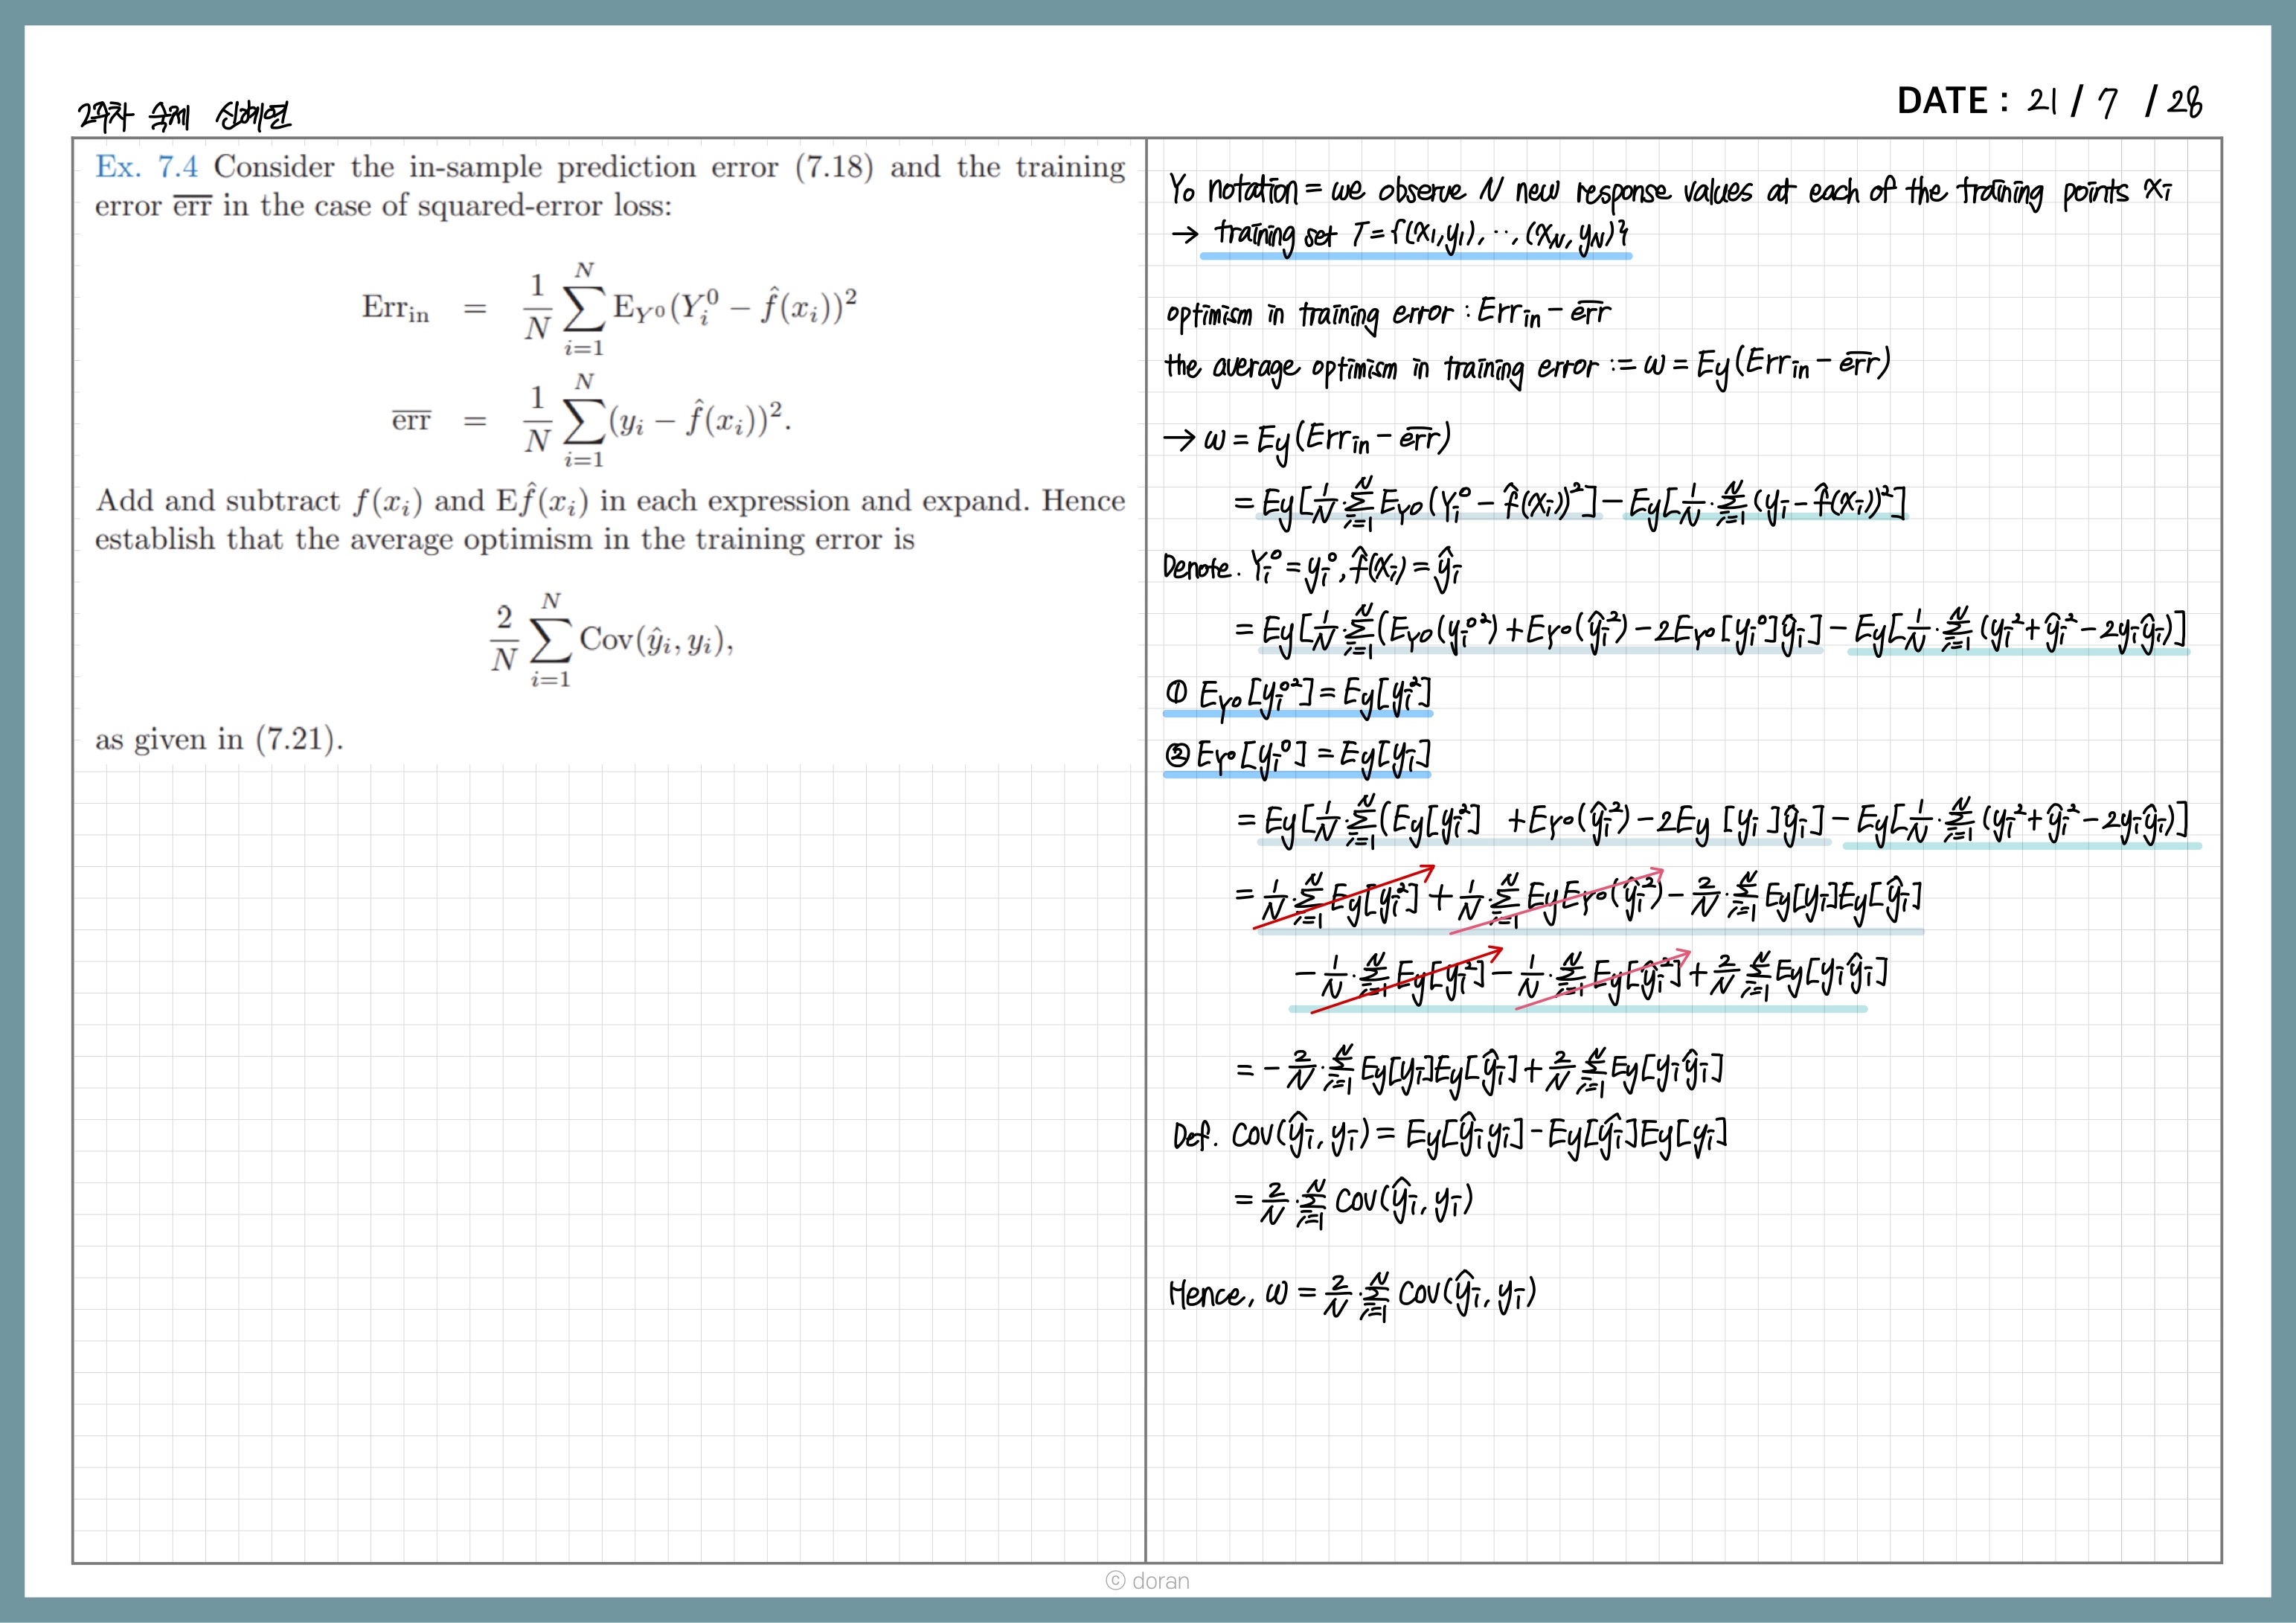 2주차 숙제 신예연
DATE : 21 / 7 / 28
Ex. 7.4 Consider the in-sample prediction error (7.18) and the training
error \overline{err} in the case of squared-error loss:
Err_in = 1/N ∑_{i=1}^{N} E_{Y^0}(Y_i^0 − f̂(x_i))^2
\overline{err} = 1/N ∑_{i=1}^{N} (y_i − f̂(x_i))^2.
Add and subtract f(x_i) and Ef̂(x_i) in each expression and expand. Hence
establish that the average optimism in the training error is
2/N ∑_{i=1}^{N} Cov(ŷ_i, y_i),
as given in (7.21).
Y_0 notation = we observe N new response values at each of the training points x_i
→ training set T = {(x_1,y_1), ‥, (x_N, y_N)}
optimism in training error : Err_in − \overline{err}
the average optimism in training error := ω = E_y(Err_in − \overline{err})
→ ω = E_y(Err_in − \overline{err})
= E_y[1/N · ∑_{i=1}^{N} E_{Y^0}(Y_i^0 − f̂(x_i))^2] − E_y[1/N · ∑_{i=1}^{N} (y_i − f̂(x_i))^2]
Denote. Y_i^0 = y_i^0, f̂(x_i) = ŷ_i
= E_y[1/N · ∑_{i=1}^{N} (E_{Y^0}(y_i^{0 2}) + E_{Y^0}(ŷ_i^2) − 2E_{Y^0}[y_i^0]ŷ_i] − E_y[1/N · ∑_{i=1}^{N} (y_i^2 + ŷ_i^2 − 2y_iŷ_i)]
① E_{Y^0}[y_i^{0 2}] = E_y[y_i^2]
② E_{Y^0}[y_i^0] = E_y[y_i]
= E_y[1/N · ∑_{i=1}^{N} (E_y[y_i^2] + E_{Y^0}(ŷ_i^2) − 2E_y [y_i]ŷ_i] − E_y[1/N · ∑_{i=1}^{N} (y_i^2 + ŷ_i^2 − 2y_iŷ_i)]
= 1/N · ∑_{i=1}^{N} E_y[y_i^2] + 1/N · ∑_{i=1}^{N} E_yE_{Y^0}(ŷ_i^2) − 2/N · ∑_{i=1}^{N} E_y[y_i]E_y[ŷ_i]
− 1/N · ∑_{i=1}^{N} E_y[y_i^2] − 1/N · ∑_{i=1}^{N} E_y[ŷ_i^2] + 2/N ∑_{i=1}^{N} E_y[y_iŷ_i]
= − 2/N · ∑_{i=1}^{N} E_y[y_i]E_y[ŷ_i] + 2/N ∑_{i=1}^{N} E_y[y_iŷ_i]
Def. Cov(ŷ_i, y_i) = E_y[ŷ_iy_i] − E_y[ŷ_i]E_y[y_i]
= 2/N · ∑_{i=1}^{N} Cov(ŷ_i, y_i)
Hence, ω = 2/N · ∑_{i=1}^{N} Cov(ŷ_i, y_i)
© doran